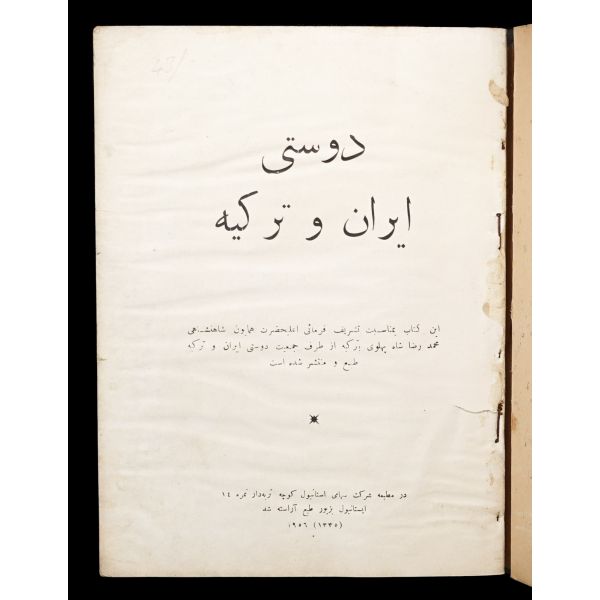 43/
دوستی
ایران و ترکیه
این کتاب بمناسبت تشریف فرمائی اعلیحضرت همایون شاهنشاهی
محمد رضا شاه پهلوی بترکیه از طرف جمعیت دوستی ایران و ترکیه
طبع و منتشر شده است
در مطبعه شرکت سهامی استانبول کوچه تربه‌دار نمره ١٤
ایستانبول بزیور طبع آراسته شد
(١٣٣٥) ١٩٥٦